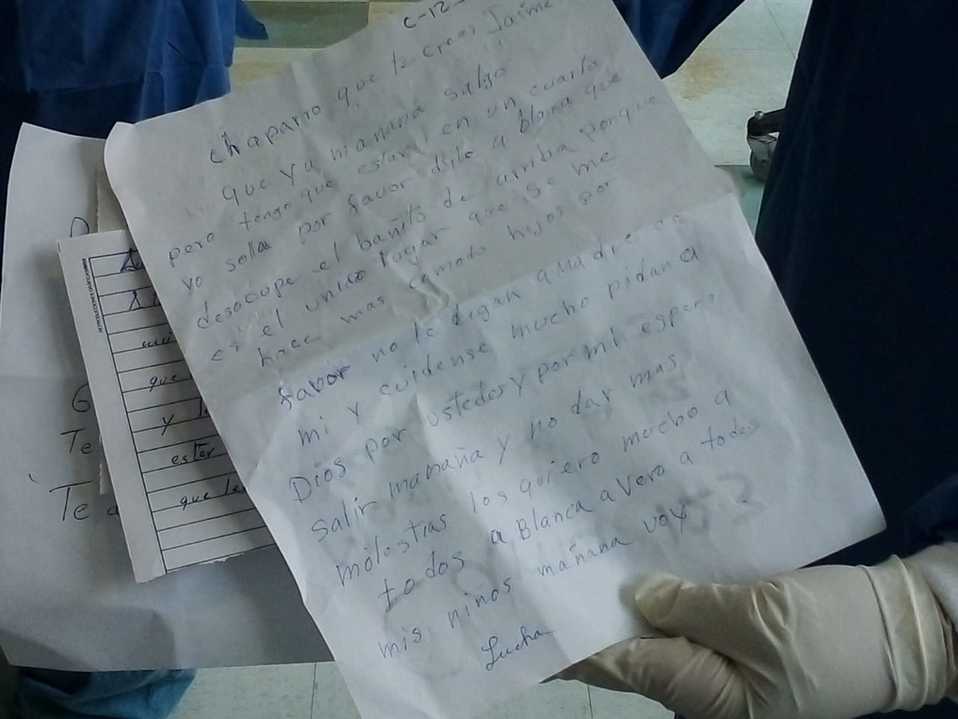 C-12-
chaparro que le crees Jaime
que ya mañana salgo
pero tengo que estar en un cuarto
yo sola por favor dile a blanca que
desocupe el bañito de arriba porque
es el unico lugar que se me
hace mas comodo hijos por
favor no le digan a nadie
mi y cuidense mucho pidan a
Dios por ustedes y por mi espero
salir mañana y no dar mas
molestias los quiero mucho a
todos a Blanca a Vero a todos
mis niños mañana voy
Lucha
que
y
ester
que
G
Te
Te a